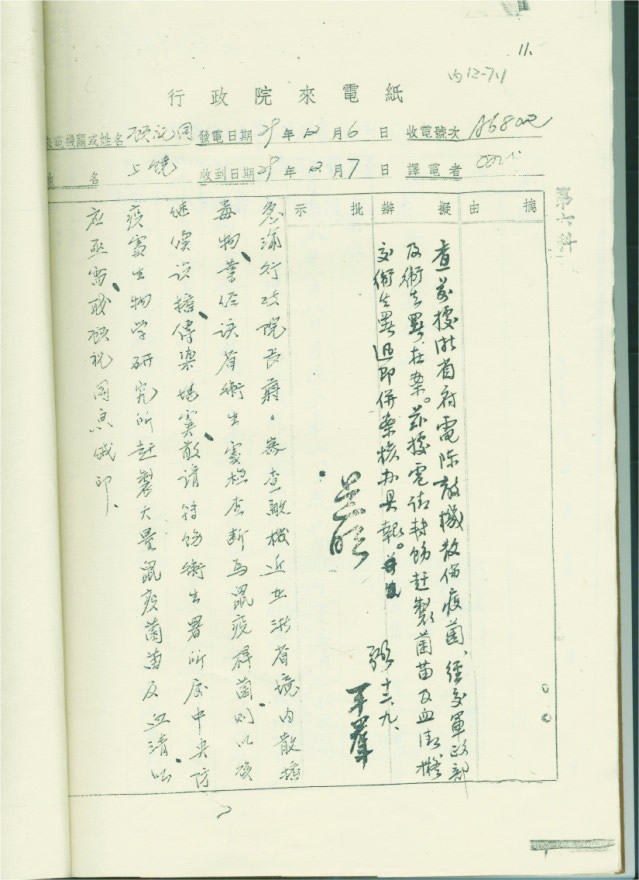 11.
内12-711
行政院來電紙
來電機關或姓名 顧祝同 發電日期29年12月6日 收電號次 A6802
地名 上饒 收到日期29年12月7日 譯電者
摘由
擬辦
批示
第六科
查前據浙省府電陳敵機散佈疫菌、經交軍政部
及衛生署在案。茲據電請轉飭赶製菌苗及血清、擬
交衛生署迅即併案核办具報。
張 十二、九、
急渝行政院長蔣。密查敵機近在浙省境内散播
毒物、業經該省衛生處檢查斷為鼠疫桿菌、則以後
難保設擴傳染堪虞、敢請特飭衛生署所屬中央防
疫處生物学研究所赶製大量鼠疫菌苗及血清、以
应亟需、職顧祝同 印、